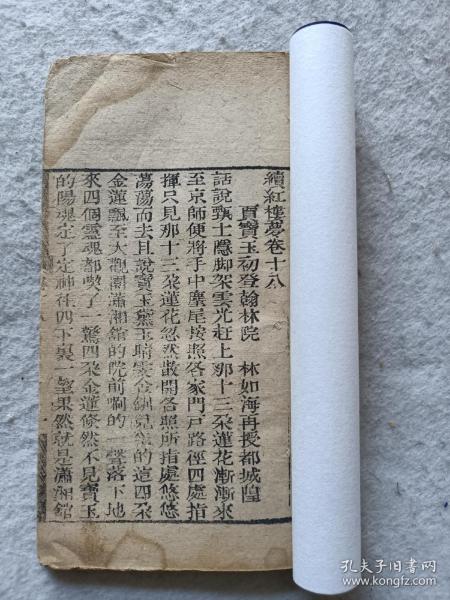 續紅樓夢卷十八
賈寶玉初登翰林院　林如海再授都城隍
話說甄士隱脚架雲光赶上那十三朶蓮花漸漸來
至京師便將手中麈尾按照各家門戸路徑四處指
揮只見那十三朶蓮花忽然散開各照所指處悠悠
蕩蕩而去且說寶玉黛玉晴雯金釧兒坐的這四朶
金蓮飄至大觀園瀟湘舘的院前啊的一聲落下地
來四個靈魂都吃了一驚四朶金蓮倐然不見寶玉
的陽魂定了定神徃四下裏一望果然就是瀟湘舘
孔夫子旧书网
www.kongfz.com